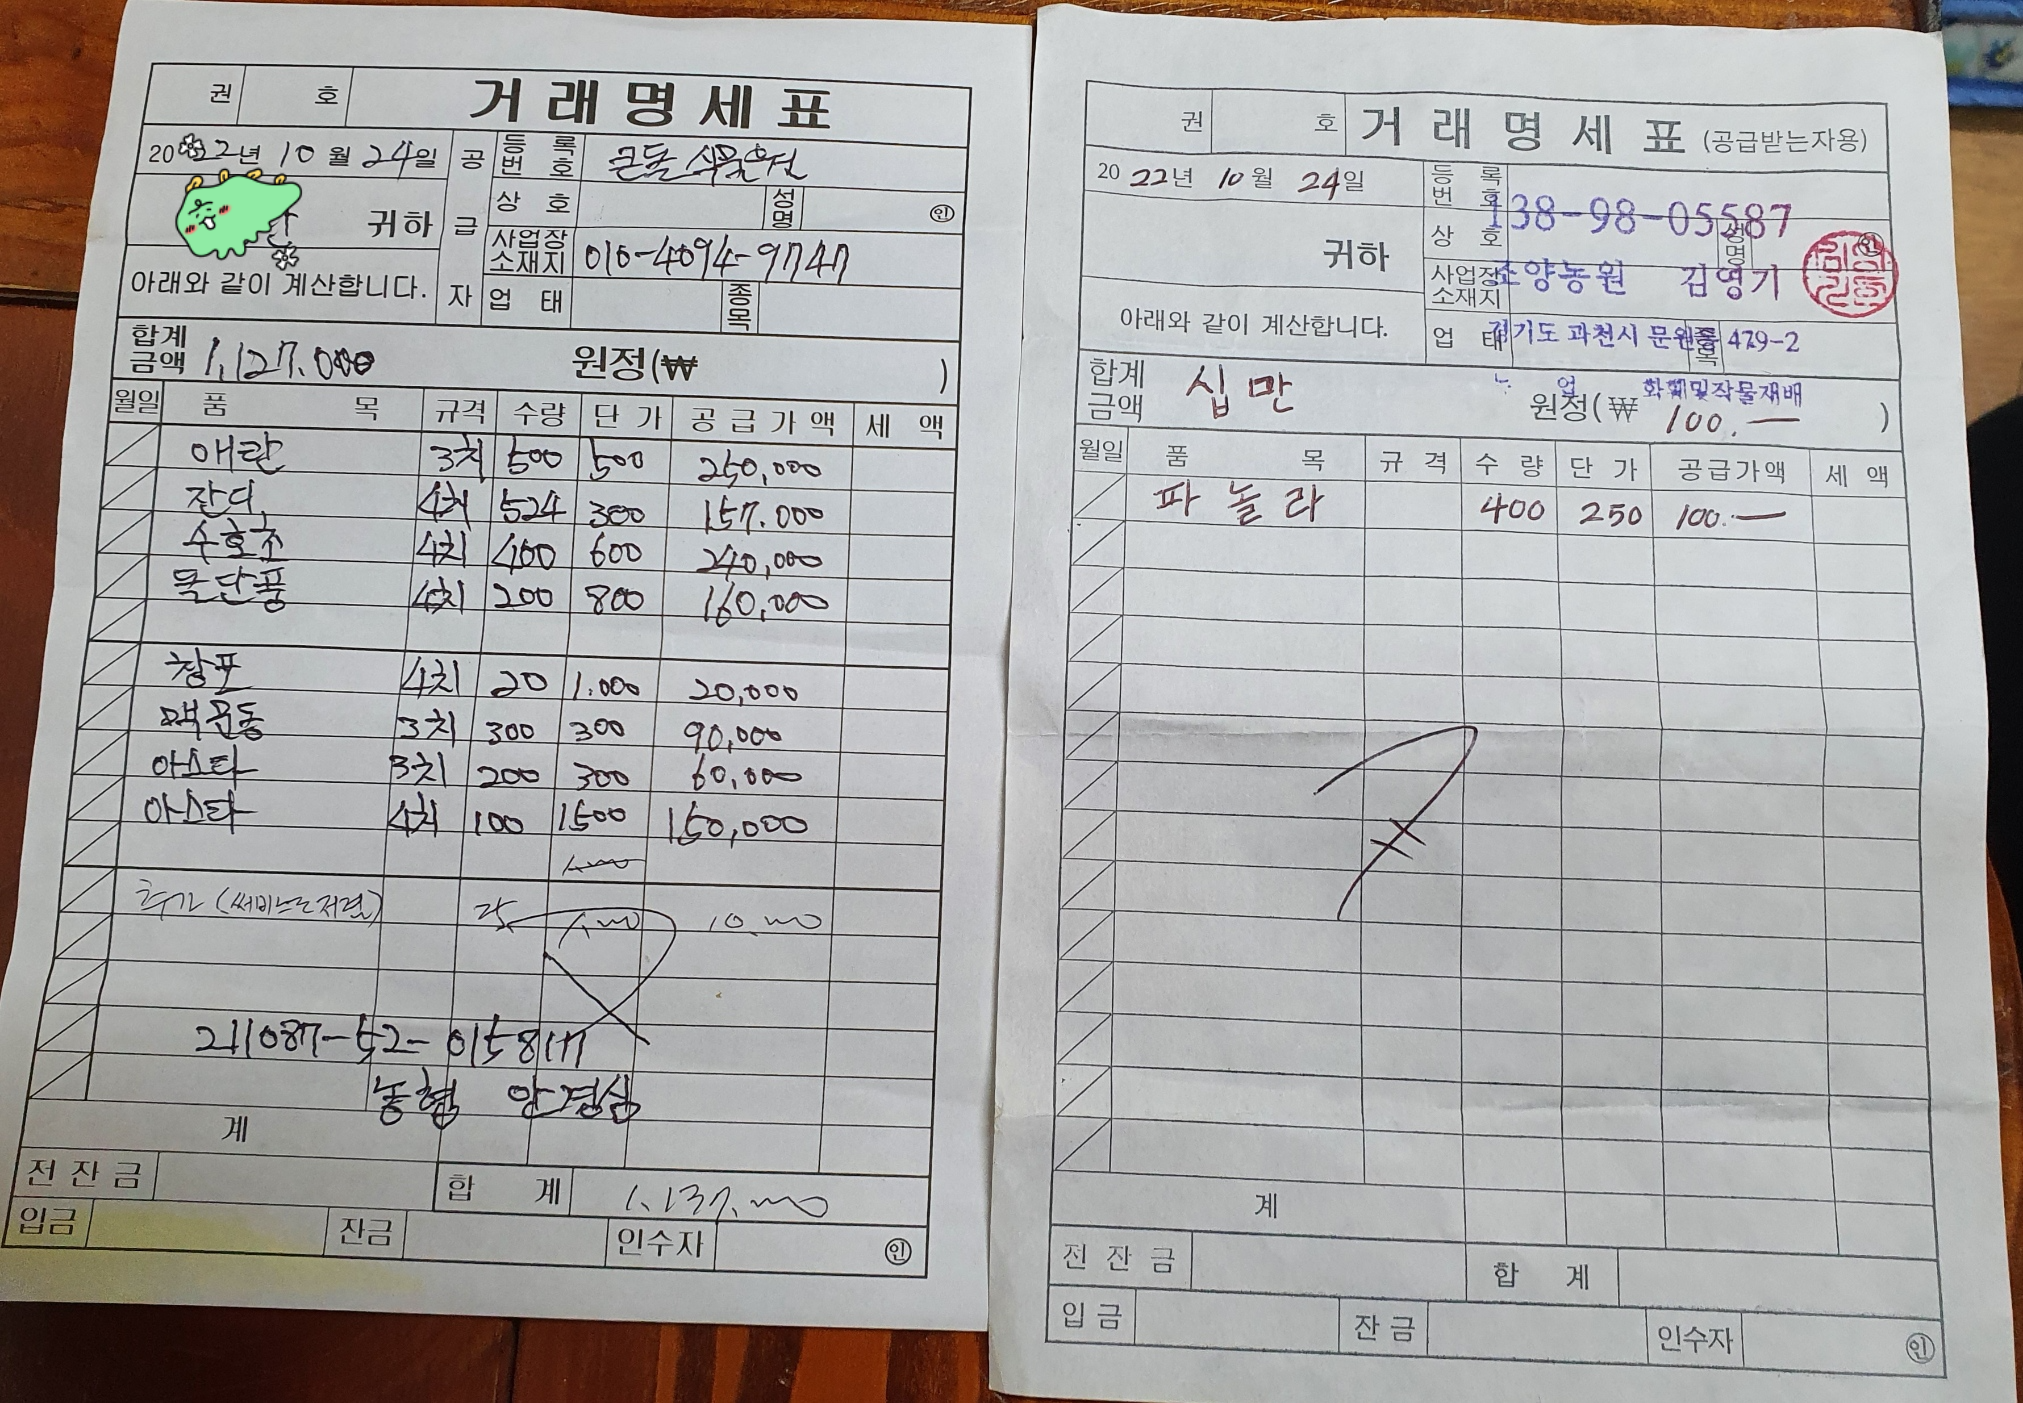 권 호 거래명세표
2022년 10월 24일
귀하
아래와 같이 계산합니다.
공급자
등록번호 큰돌식물원
상호 성명 ㊞
사업장소재지 010-4094-9747
업태 종목
합계금액 1,127.000 원정(₩ )
월일 품목 규격 수량 단가 공급가액 세액
애란 3치 500 500 250,000
잔디 4치 524 300 157.000
수호초 4치 400 600 240,000
돌단풍 4치 200 800 160,000
창포 4치 20 1.000 20,000
맥문동 3치 300 300 90,000
아스타 3치 200 300 60,000
아스타 4치 100 1500 150,000
추가
211087-52-015817
농협 안경심
계
전잔금 합계 1.137.000
입금 잔금 인수자 ㊞
권 호 거래명세표 (공급받는자용)
2022년 10월 24일
귀하
아래와 같이 계산합니다.
등록번호 138-98-05587
상호 성명 ㊞
사업장소재지 소양농원 김영기
업태 경기도 과천시 문원동 479-2
종목
농 업 화훼및작물재배
합계금액 십만 원정(₩ 100.— )
월일 품목 규격 수량 단가 공급가액 세액
파놀라 400 250 100.—
계
전잔금 합계
입금 잔금 인수자 ㊞